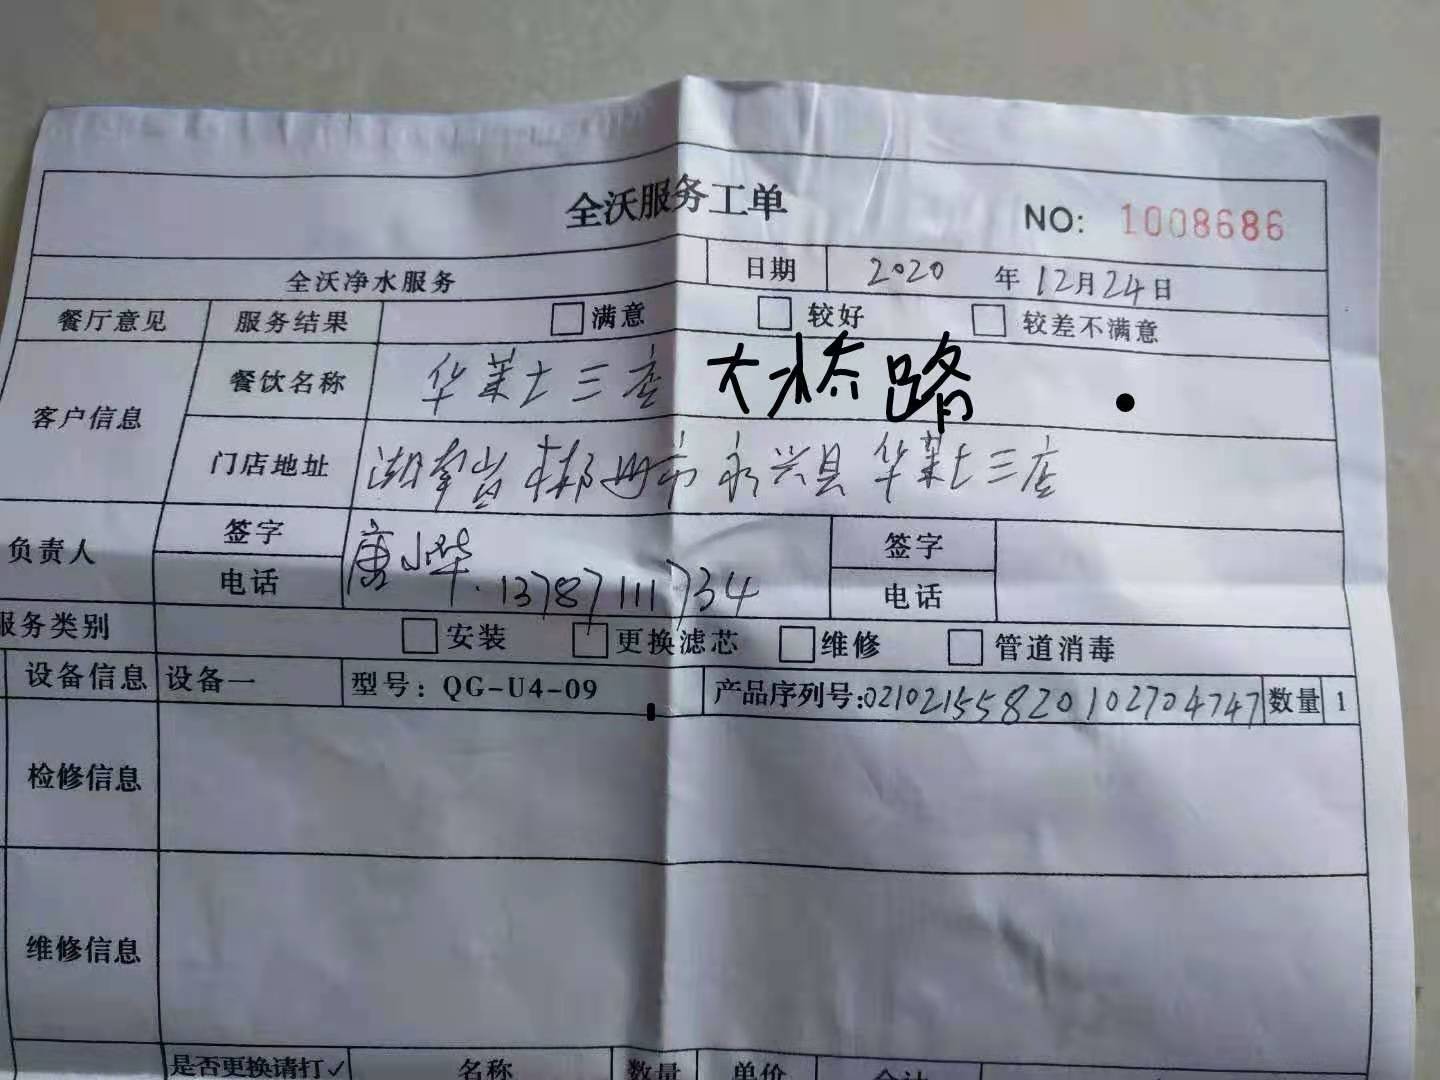 全沃服务工单 NO: 1008686
全沃净水服务 日期 2020 年 12月24日
餐厅意见 服务结果 □满意 □较好 □较差不满意
客户信息 餐饮名称 华莱士三店 大桥路
门店地址 湖南省郴州市永兴县华莱士三店
负责人 签字 唐小晔 签字
电话 13787111734 电话
服务类别 □安装 □更换滤芯 □维修 □管道消毒
设备信息 设备一 型号：QG-U4-09 产品序列号:02102155820102704747 数量 1
检修信息
维修信息
是否更换请打✓ 名称 数量 单价 合计